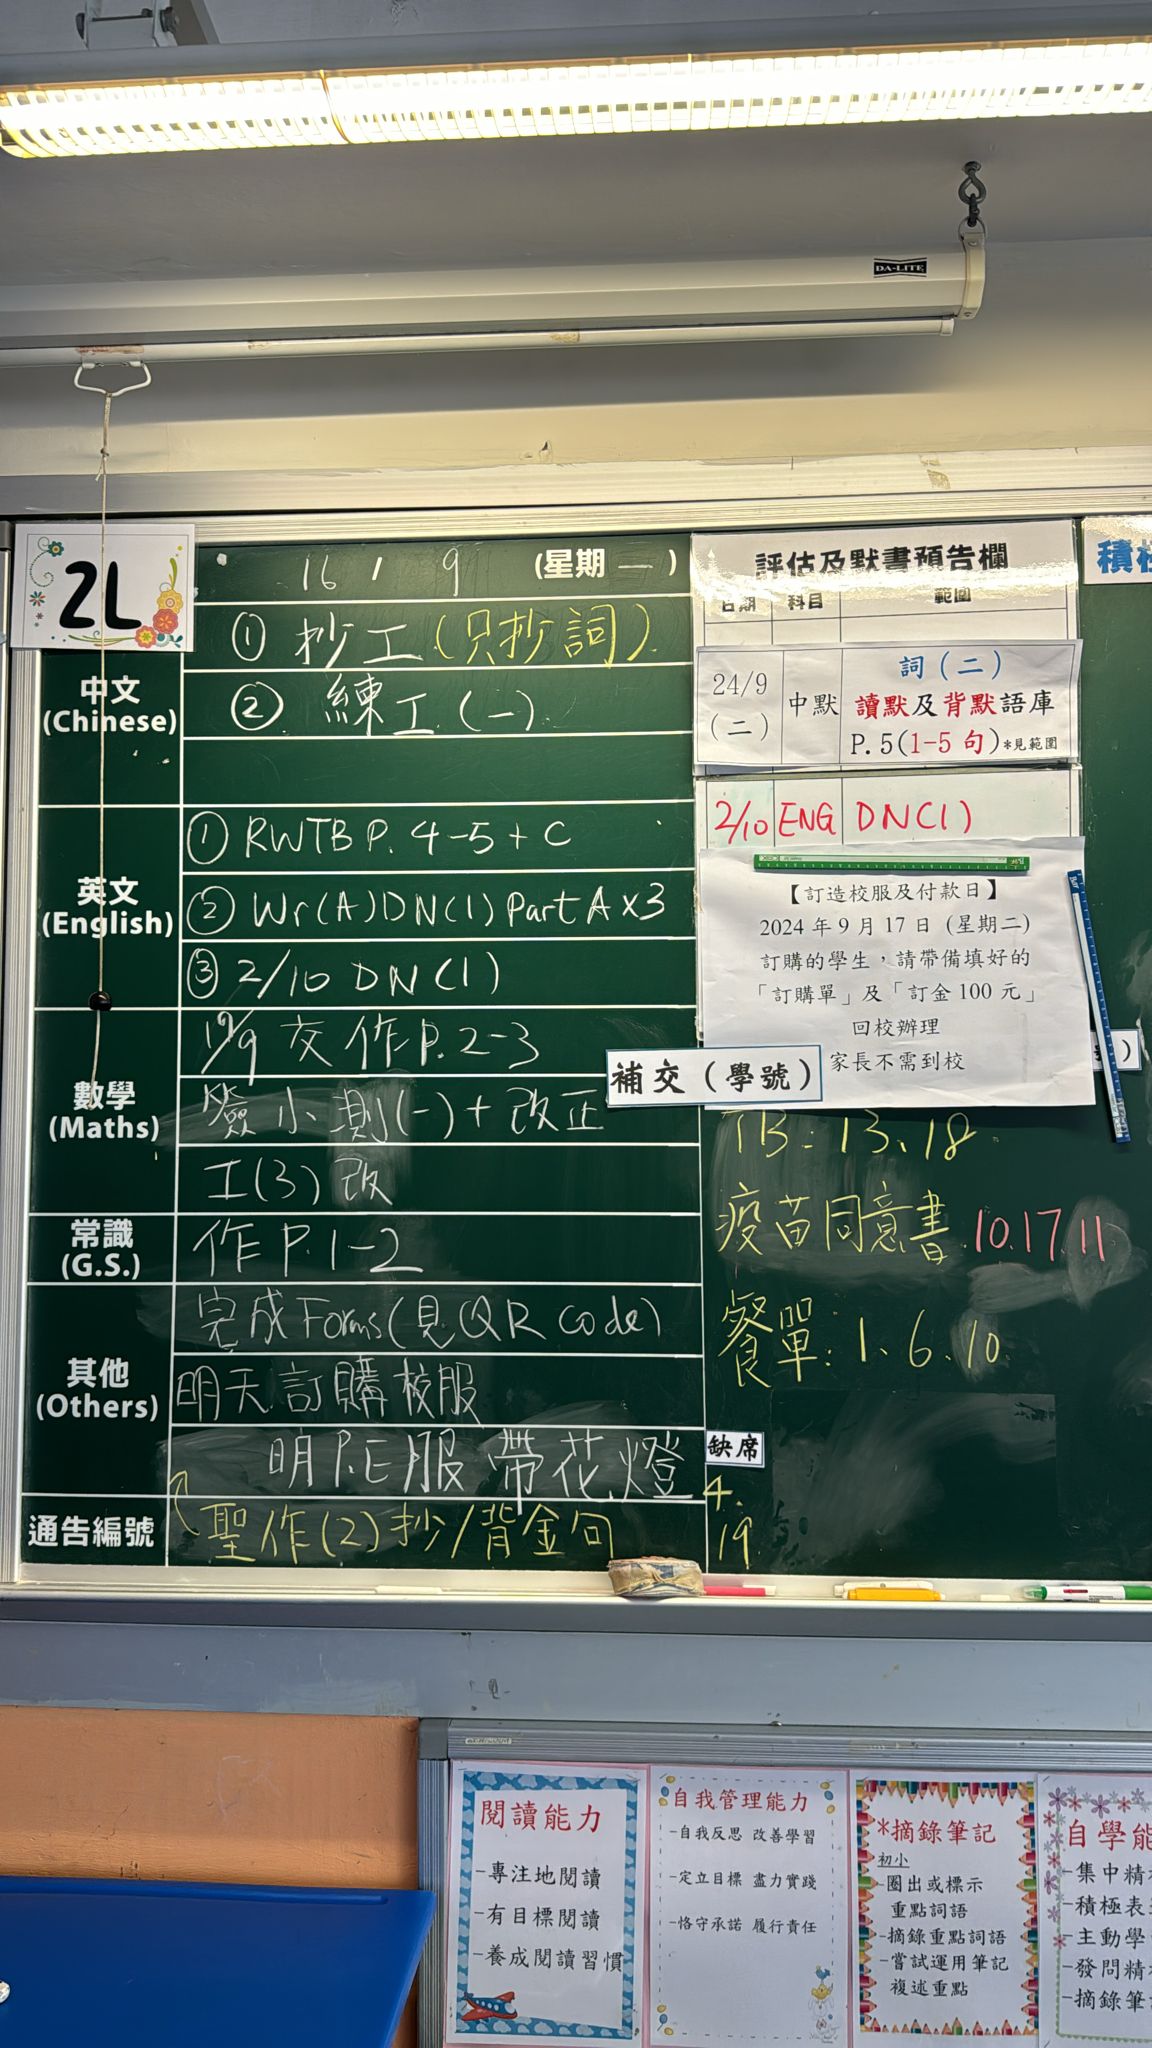 DA-LITE
2L
16 / 9 (星期一)
中文
(Chinese)
① 抄工(只抄詞)
② 練工(一)
英文
(English)
① RWTB P. 4-5 + C
② Wr(A) DN(1) Part A x3
③ 2/10 DN(1)
數學
(Maths)
交作 P. 2-3
簽小測(一)+改正
工(3)改
常識
(G.S.)
作 P. 1-2
其他
(Others)
完成Forms(見QR code)
明天訂購校服
明P.E服 帶花燈
通告編號
聖作(2)抄/背金句
評估及默書預告欄
日期 科目 範圍
24/9
(二)
中默
詞(二)
讀默及背默語庫
P.5(1-5句)*見範圍
2/10 ENG DN(1)
【訂造校服及付款日】
2024年9月17日(星期二)
訂購的學生,請帶備填好的
「訂購單」及「訂金100元」
回校辦理
家長不需到校
補交(學號)
TB: 13、18
疫苗同意書 10.17.11
餐單:1、6、10
缺席
4.
19
閱讀能力
-專注地閱讀
-有目標閱讀
-養成閱讀習慣
自我管理能力
-自我反思 改善學習
-定立目標 盡力實踐
-恪守承諾 履行責任
*摘錄筆記
初小
-圈出或標示
重點詞語
-摘錄重點詞語
-嘗試運用筆記
複述重點
自學能
-集中精
-積極表
-主動學
-發問精
-摘錄筆